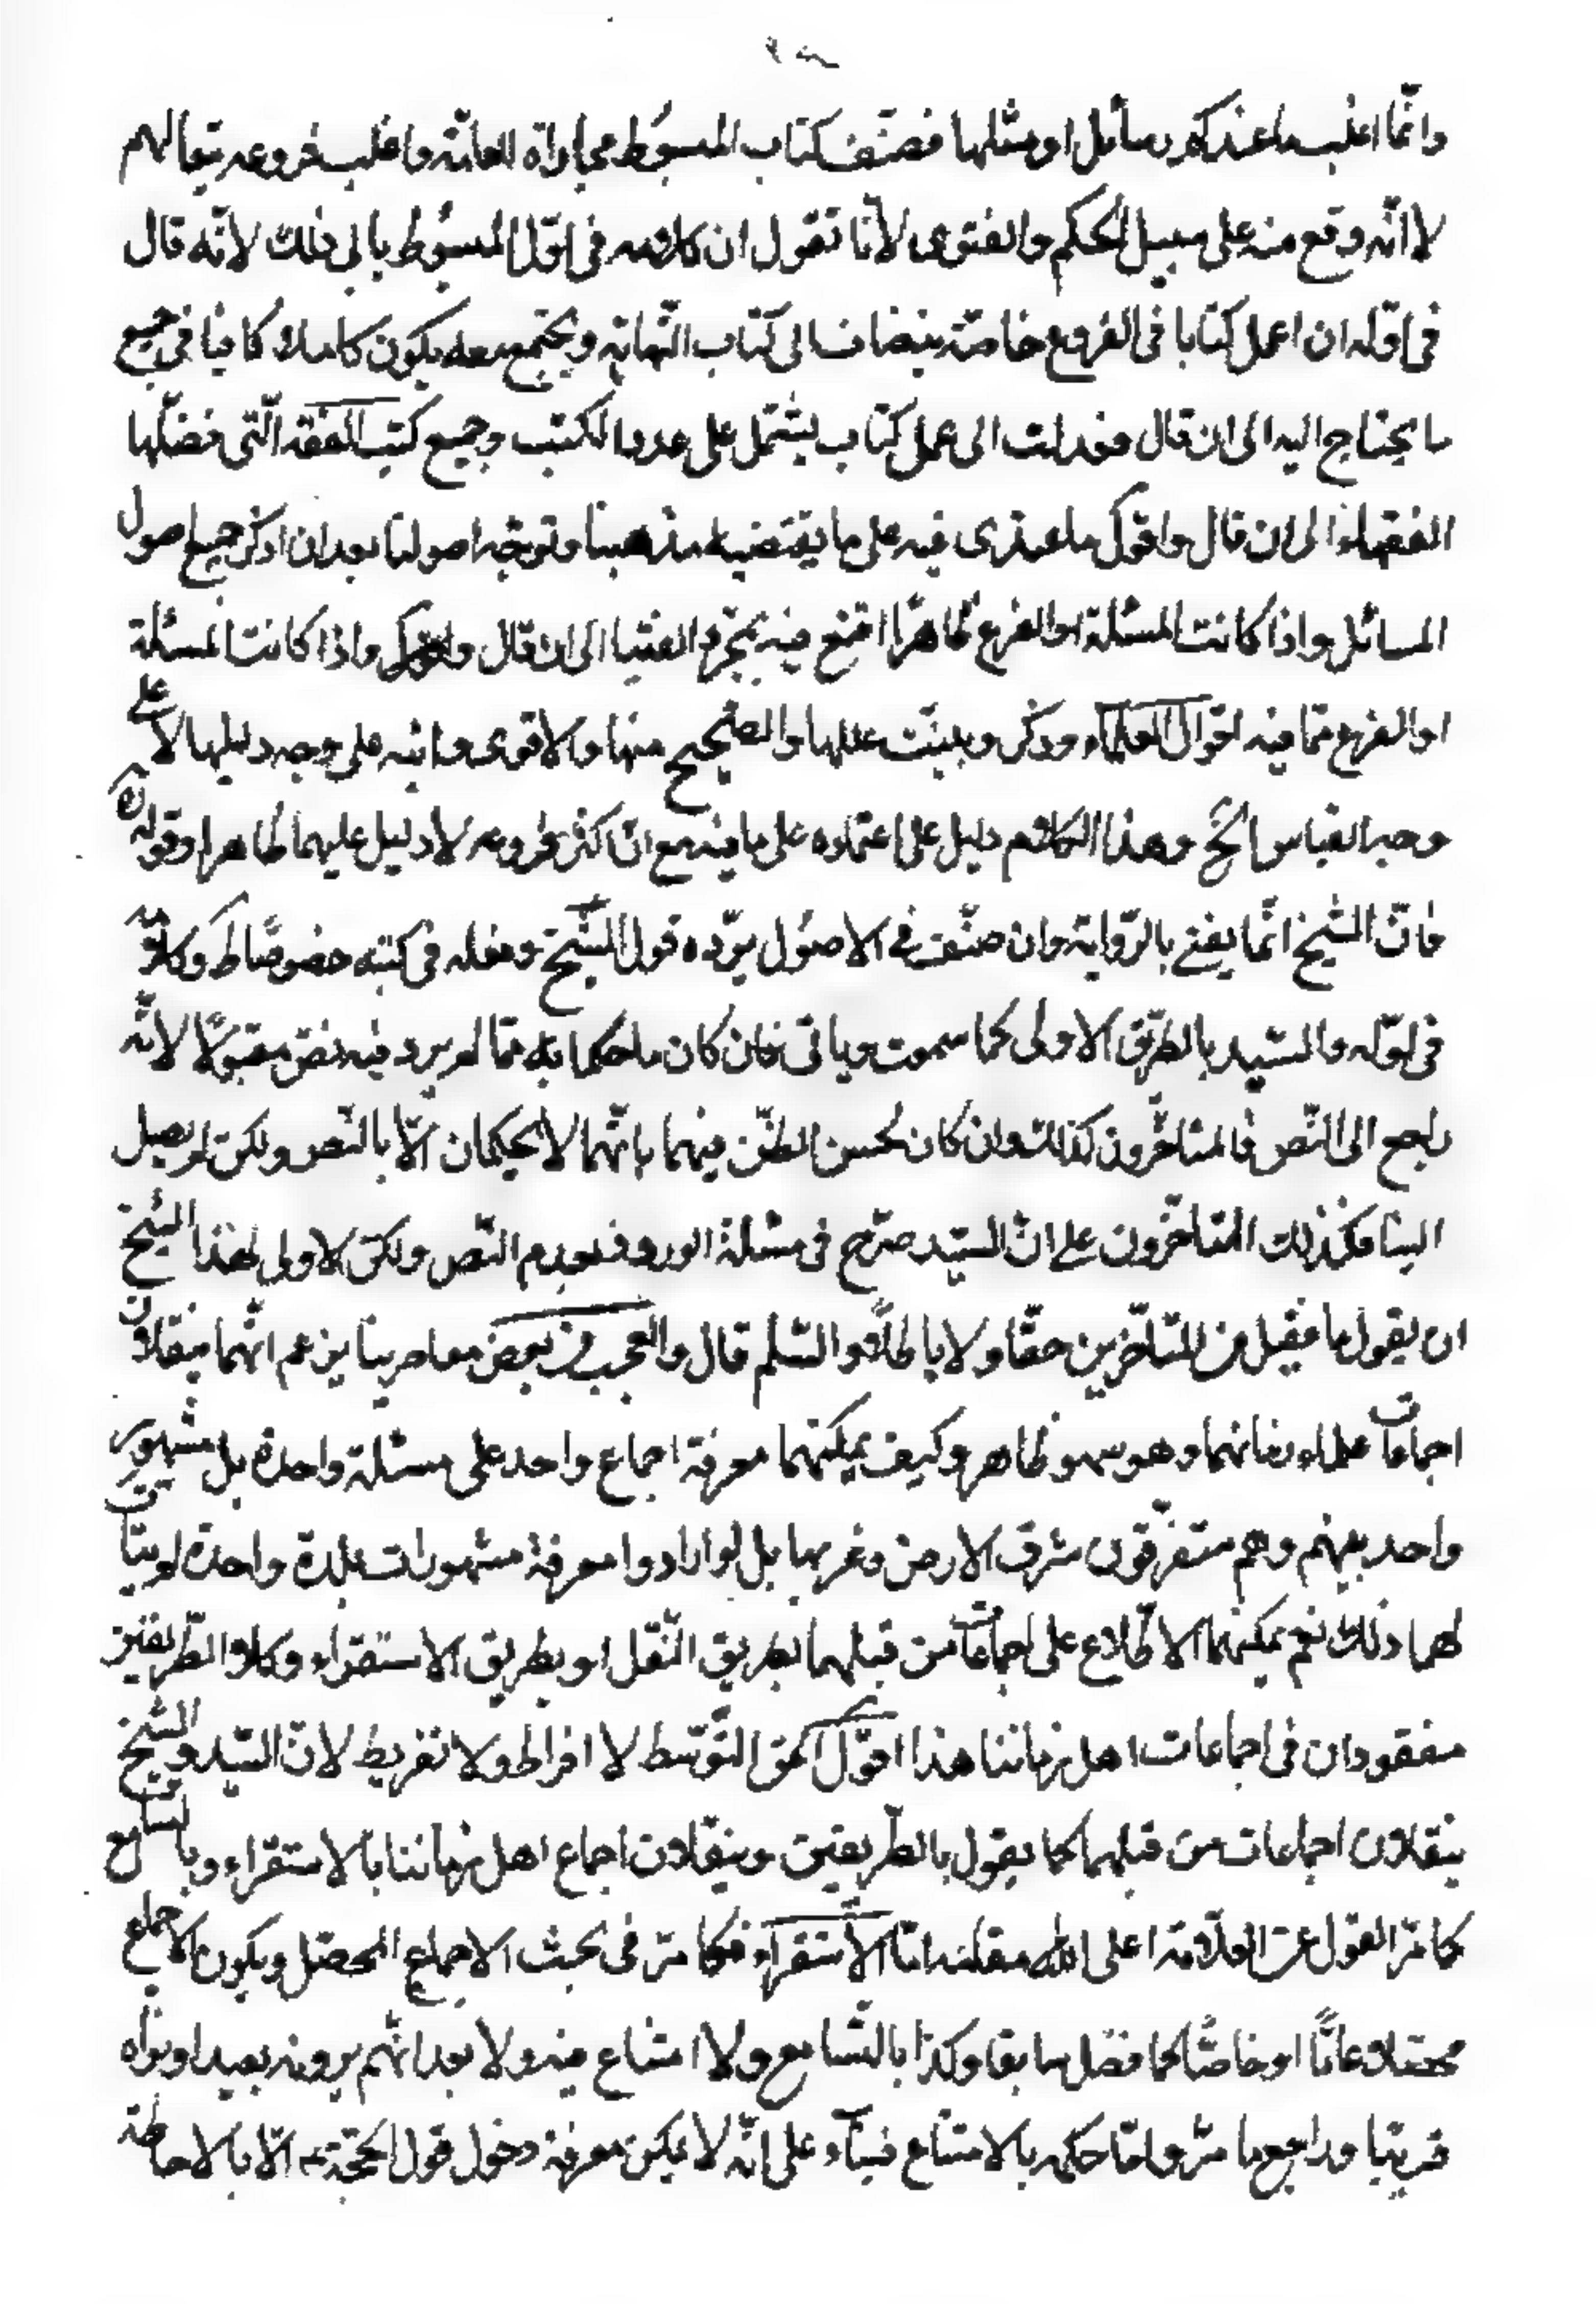 وانّما اغلب ما عندكم رسائل او مثلها فصنّف كتاب المبسُوط مجاراة للعامّة واغلب فروعه تبعا لهم
لا انّه وقع منه على سبيل الحكم والفتوى لأنا نقول ان كلامه فى اوّل المبسُوط يابى ذلك لانّه قال
فى اوّله ان اعمل كتابا فى الفروع خاصّة ينضاف الى كتاب النّهاية ويجتمع معه يكون كاملا كافيا فى جميع
ما يحتاج اليه الى ان قال فعدلت الى عمل كتاب يشتمل على عدد الكتب وجميع كتب الفقه الّتى فصّلها
الفقهاء الى ان قال واقول ما عندى فيه على ما يقتضيه مذهبنا وتوجّبه اصولنا بعد ان اذكر جميع اصول
المسائل واذا كانت المسئلة او الفرع ظاهرًا اقنع فيه بمجرّد الفتيا الى ان قال واذا كانت المسئلة
او الفرع ممّا فيه اقوال العلماء وذكر وبينّت عللها والصّحيح منها والاقوى وانبّه على وجه دليلها لا على
وجه القياس الخ وهذا الكلام دليل على اعتماده على ما فيه مع انّ اكثر فروعه لا دليل عليهما ظاهرا وقوله
فانّ الشيخ انّما يفتى بالرّواية وان صنّف فى الاصُول يردّه قول الشّيخ وفعله فى كتبه خصوصًا ط وكلامه
فى اوّله والسّيد بالطّريق الاولى كما سمعت وياتى فان كان ما حكما به ممّا لم يرد فيه نصّ مقبولًا لانّه
راجع الى النّص فالمتاخّرون كذلك وان كان لحُسن الظّن فيهما بانّهما لا يحكمان الّا بالنّص ولكن لم يصل
الينا فكذلك المتاخّرون على انّ السّيد صرّح فى مسئلة بعدم النّص ولكن الاولى لهذا الشّيخ
ان يقول ما نقبل من المتاخّرين حقّا ولا باطلًا والسّلم قال والعجب من بعض معاصرينا يزعم انّهما ينقلان
اجماعات علماء زمانهما وهو سهو ظاهر وكيف يمكنهما معرفة اجماع واحد على مسئلة واحدة بل مشهور
واحد بينهم وهم متفرّقون شرق الارض وغربها بل لو ارادوا معرفة مشهورات بلدة واحدة لم يتات
لهما ذلك نعم يمكنهما الاطّلاع على اجماعات من قبلهما بطريق النّقل او بطريق الاستقراء وكلا الطّريقين
مفقودان فى اجماعات اهل زماننا هذا اقول الحق التّوسّط لا افراط ولا تفريط لانّ السّيد والشّيخ
ينقلان اجماعات من قبلهما كما يقول بالطّريقين وينقلان اجماع اهل زماننا بالاستقراء وبالتسامع
كما مرّ القول عن العلّامة اعلى اللّه مقامه امّا الاستقراء فكما مرّ فى بحث الاجماع المحصّل ويكون الاجماع
محصّلا عامًّا او خاصًّا كما فصّل سابقا وكذا بالتّسامع ولا امتناع فيه ولا بعد انّهم يرونه بعيدا ونراه
قريبا وراجع ما مرّ وامّا حكمه بالامتناع فبناء على انّه لا يمكن معرفة دخول قول الحجّة ع الّا بالاحاطة